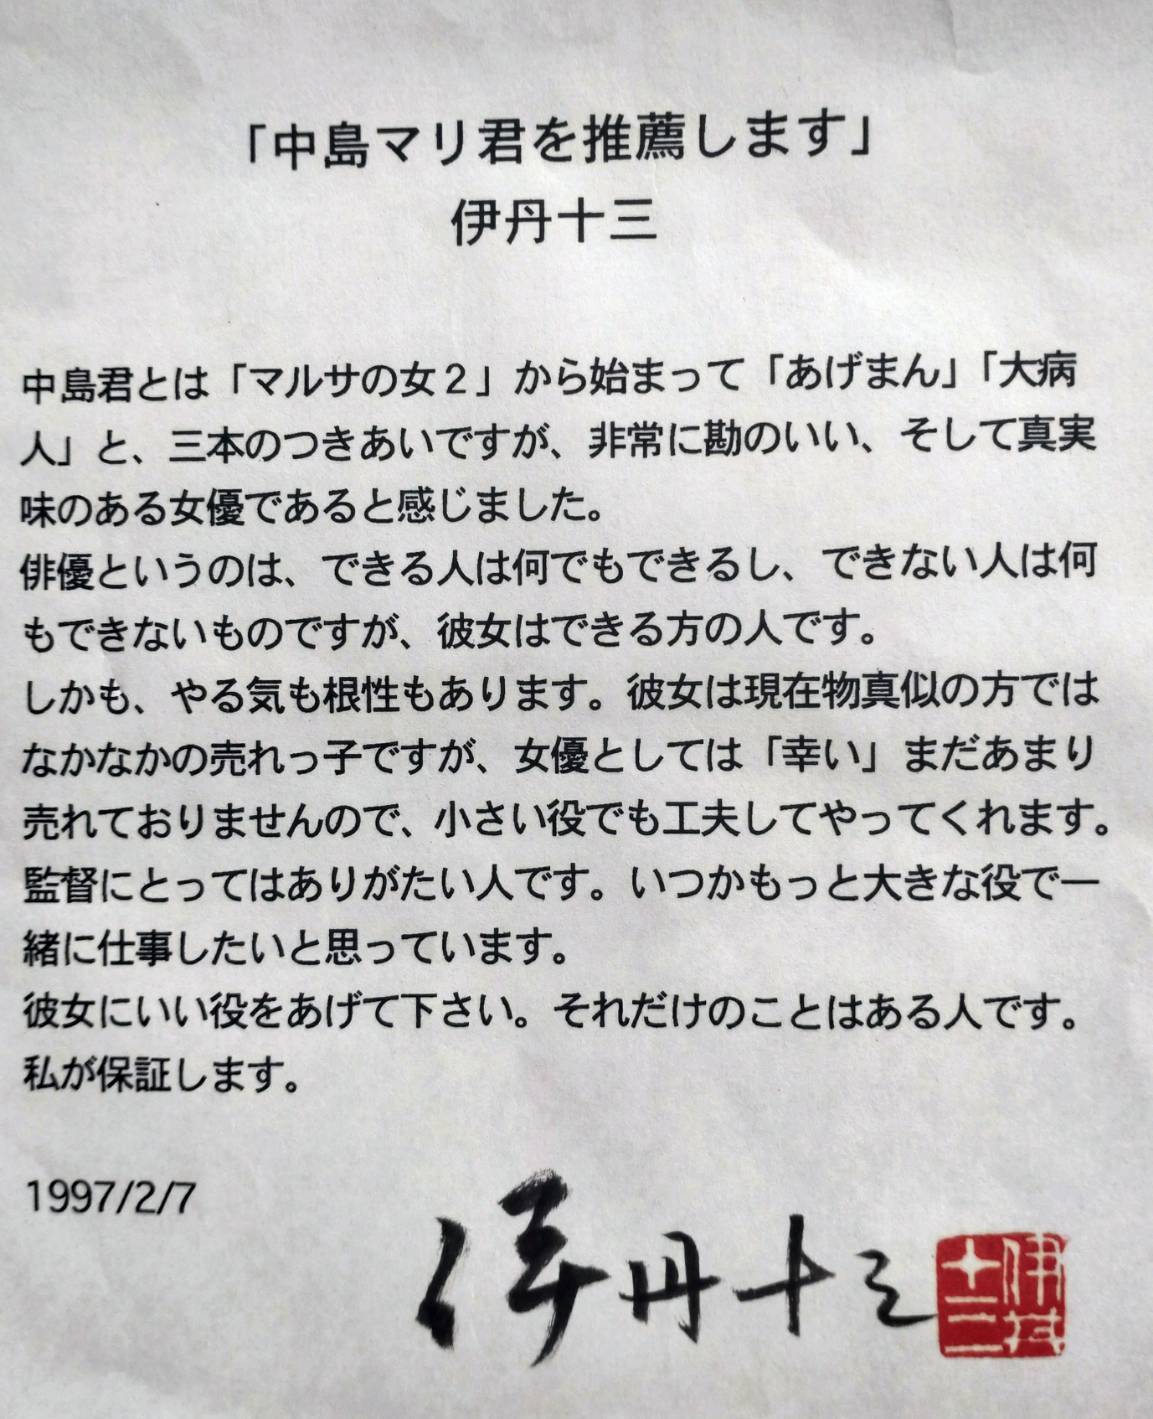 「中島マリ君を推薦します」
伊丹十三
中島君とは「マルサの女２」から始まって「あげまん」「大病
人」と、三本のつきあいですが、非常に勘のいい、そして真実
味のある女優であると感じました。
俳優というのは、できる人は何でもできるし、できない人は何
もできないものですが、彼女はできる方の人です。
しかも、やる気も根性もあります。彼女は現在物真似の方では
なかなかの売れっ子ですが、女優としては「幸い」まだあまり
売れておりませんので、小さい役でも工夫してやってくれます。
監督にとってはありがたい人です。いつかもっと大きな役で一
緒に仕事したいと思っています。
彼女にいい役をあげて下さい。それだけのことはある人です。
私が保証します。
1997/2/7
伊丹十三
伊丹
十三